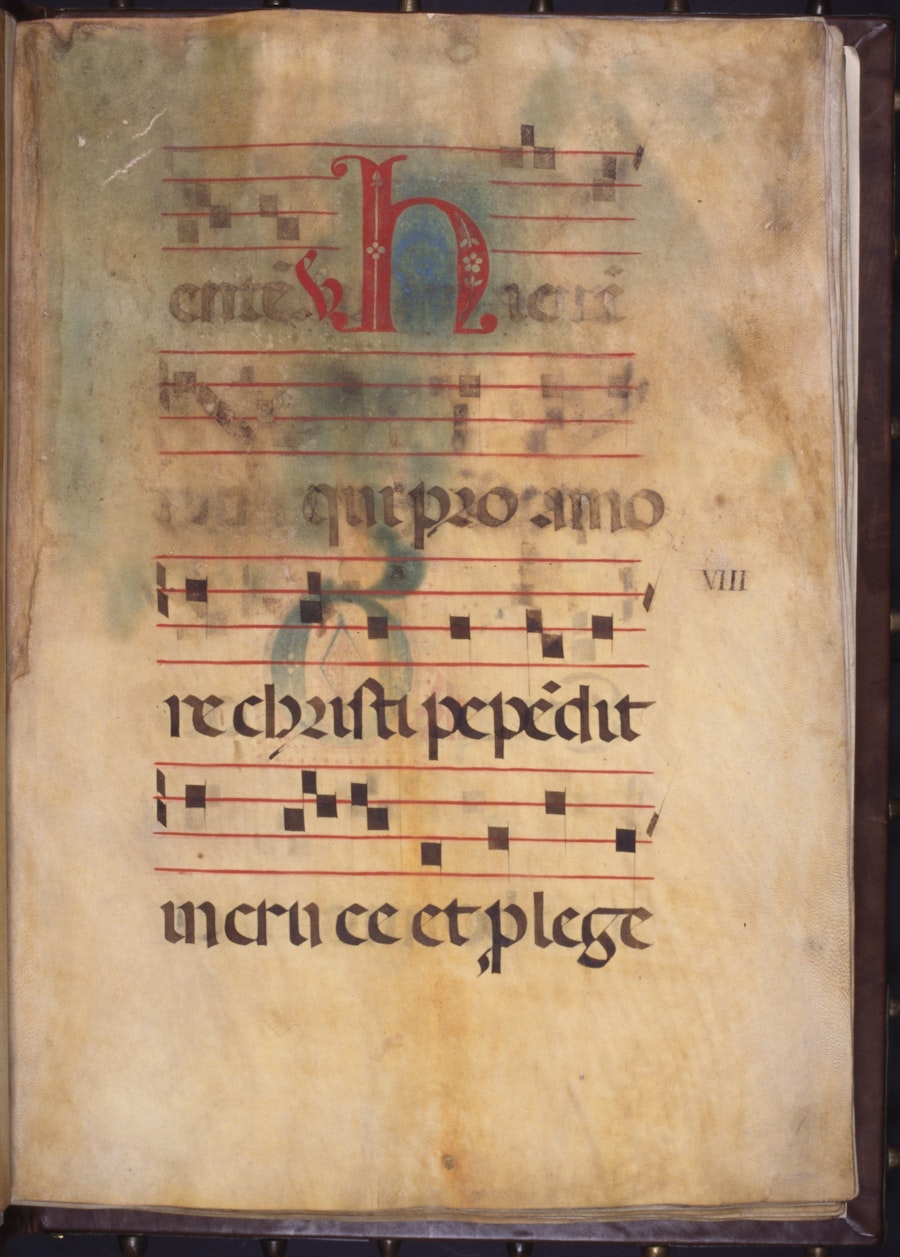 entē. V. Hic ē
qui pro amo
VIII
re christi pepēdit
in cru ce et p lege